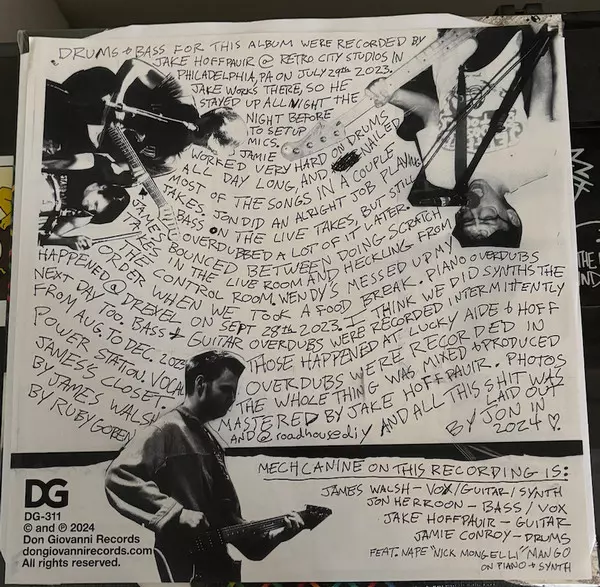 DRUMS + BASS FOR THIS ALBUM WERE RECORDED BY
JAKE HOFFPAUIR @ RETRO CITY STUDIOS IN
PHILADELPHIA, PA ON JULY 29th 2023.
JAKE WORKS THERE, SO HE
STAYED UP ALL NIGHT THE
NIGHT BEFORE
TO SETUP
MICS.
JAMIE
WORKED VERY HARD ON DRUMS
ALL DAY LONG, AND NAILED
MOST OF THE SONGS IN A COUPLE
TAKES. JON DID AN ALRIGHT JOB PLAYING
BASS ON THE LIVE TAKES, BUT STILL
OVERDUBBED A LOT OF IT LATER.
JAMES BOUNCED BETWEEN DOING SCRATCH
TAKES IN THE LIVE ROOM AND HECKLING FROM
THE CONTROL ROOM. WENDY'S MESSED UP MY
ORDER WHEN WE TOOK A FOOD BREAK. PIANO OVERDUBS
HAPPENED @ DREXEL ON SEPT 28th 2023. I THINK WE DID SYNTHS THE
NEXT DAY TOO. BASS + GUITAR OVERDUBS WERE RECORDED INTERMITTENTLY
FROM AUG. TO DEC. 2023. THOSE HAPPENED AT LUCKY AIDE + HOFF
POWER STATION. VOCAL OVERDUBS WERE RECORDED IN
JAMES'S CLOSET. THE WHOLE THING WAS MIXED + PRODUCED
MASTERED BY JAKE HOFFPAUIR. PHOTOS
BY JAMES WALSH AND ALL THIS SHIT WAZ
BY RUBY GOREN AND @roadhousediy LAID OUT
BY JON IN
2024 ♡
MECHCANINE ON THIS RECORDING IS:
JAMES WALSH - VOX/GUITAR/SYNTH
JON HERROON - BASS/VOX
JAKE HOFFPAUIR - GUITAR
JAMIE CONROY - DRUMS
FEAT. NAPE "NICK MONGELLI" MANGO
ON PIANO + SYNTH
DG
DG-311
© and ℗ 2024
Don Giovanni Records
dongiovannirecords.com
All rights reserved.